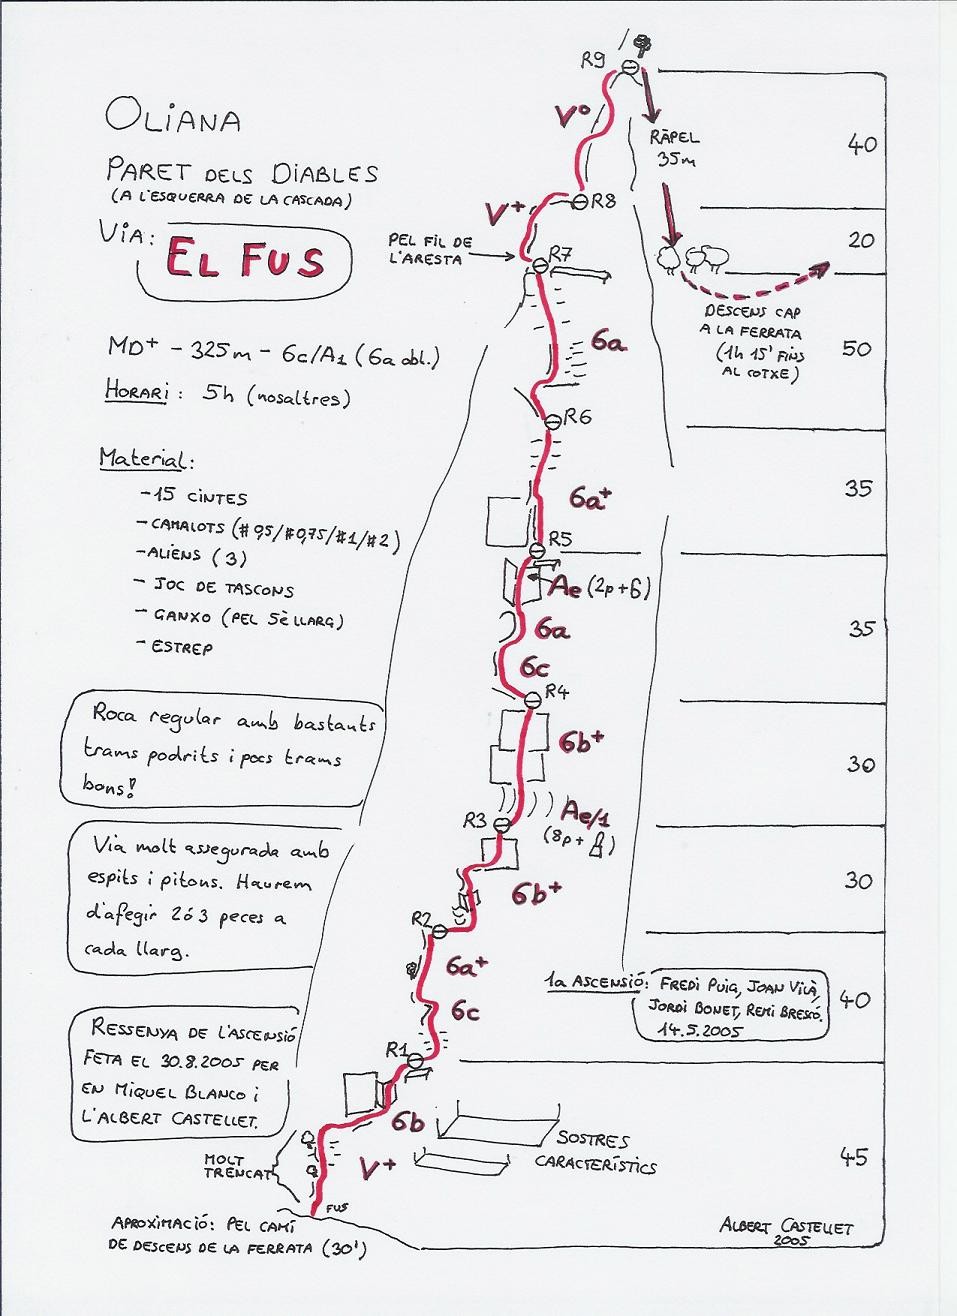 OLIANA
PARET DELS DIABLES
(A L'ESQUERRA DE LA CASCADA)
VIA:
EL FUS
MD+ - 325m - 6c/A1 (6a obl.)
HORARI: 5h (nosaltres)
Material:
-15 CINTES
-CAMALOTS (#0,5/#0,75/#1/#2)
-ALIENS (3)
- JOC DE TASCONS
- GANXO (PEL 5È LLARG)
- ESTREP
Roca regular amb bastants
trams podrits i pocs trams
bons!
Via molt assegurada amb
espits i pitons. Haurem
d'afegir 2 ó 3 peces a
cada llarg.
RESSENYA DE L'ASCENSIÓ
FETA EL 30.8.2005 PER
EN MIQUEL BLANCO i
L'ALBERT CASTELLET.
MOLT
TRENCAT
APROXIMACIÓ: PEL CAMÍ
DE DESCENS DE LA FERRATA (30')
R9
V°
RÀPEL
35m
40
R8
V+
20
PEL FIL DE
L'ARESTA
R7
DESCENS CAP
A LA FERRATA
(1h 15' FINS
AL COTXE)
6a
50
R6
6a+
35
R5
Ae (2p+G)
6a
35
6c
R4
6b+
30
Ae/1
(8p+
R3
6b+
30
R2
6a+
6c
40
1a ASCENSIÓ: FREDI PUIG, JOAN VILÀ,
JORDI BONET, REMI BRESCÓ.
14.5.2005
R1
6b
SOSTRES
CARACTERÍSTICS
V+
45
FUS
ALBERT CASTELLET
2005